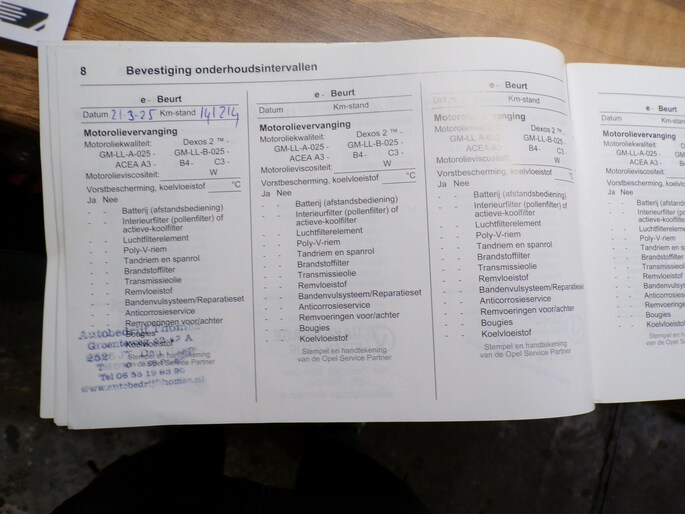 8 Bevestiging onderhoudsintervallen
e - Beurt
Datum 21-3-25 Km-stand 141214
Motorolievervanging
Motoroliekwaliteit: Dexos 2 ™ -
GM-LL-A-025 - GM-LL-B-025 -
ACEA A3 - B4 - C3 -
Motorolieviscositeit: W
Vorstbescherming, koelvloeistof °C
Ja Nee
- - Batterij (afstandsbediening)
- - Interieurfilter (pollenfilter) of
actieve-koolfilter
- - Luchtfilterelement
- - Poly-V-riem
- - Tandriem en spanrol
- - Brandstoffilter
- - Transmissieolie
- - Remvloeistof
- - Bandenvulsysteem/Reparatieset
- - Anticorrosieservice
- - Remvoeringen voor/achter
Bougies
Koelvloeistof
Stempel en handtekening
van de Opel Service Partner
Autobedrijf
Tel 06
www.autobedrijfthomas.nl
e - Beurt
Datum Km-stand
Motorolievervanging
Motoroliekwaliteit: Dexos 2 ™ -
GM-LL-A-025 - GM-LL-B-025 -
ACEA A3 - B4 - C3 -
Motorolieviscositeit: W
Vorstbescherming, koelvloeistof °C
Ja Nee
- - Batterij (afstandsbediening)
- - Interieurfilter (pollenfilter) of
actieve-koolfilter
- - Luchtfilterelement
- - Poly-V-riem
- - Tandriem en spanrol
- - Brandstoffilter
- - Transmissieolie
- - Remvloeistof
- - Bandenvulsysteem/Reparatieset
- - Anticorrosieservice
- - Remvoeringen voor/achter
- - Bougies
- - Koelvloeistof
Stempel en handtekening
van de Opel Service Partner
e - Beurt
Km-stand
Motorolievervanging
Motoroliekwaliteit: Dexos 2 ™ -
GM-LL-A-025 - GM-LL-B-025 -
ACEA A3 - B4 - C3 -
Motorolieviscositeit: W
Vorstbescherming, koelvloeistof °C
Ja Nee
- - Batterij (afstandsbediening)
- - Interieurfilter (pollenfilter) of
actieve-koolfilter
- - Luchtfilterelement
- - Poly-V-riem
- - Tandriem en spanrol
- - Brandstoffilter
- - Transmissieolie
- - Remvloeistof
- - Bandenvulsysteem/Reparatieset
- - Anticorrosieservice
- - Remvoeringen voor/achter
- - Bougies
- - Koelvloeistof
Stempel en handtekening
van de Opel Service Partner
e - Beurt
Datum Km-stand
Motorolievervanging
Motoroliekwaliteit: Dexos
GM-LL-A-025 - GM-LL-B-0
ACEA A3 - B4 -
Motorolieviscositeit: W
Vorstbescherming, koelvloeistof
Ja Nee
- - Batterij (afstandsbedien
- - Interieurfilter (pollenfil
actieve-koolfilter
- - Luchtfilterelement
- - Poly-V-riem
- - Tandriem en spanrol
- - Brandstoffilter
- - Transmissieolie
- - Remvloeistof
- - Bandenvulsysteem/R
- - Anticorrosieservice
- - Remvoeringen voor/
- - Bougies
- - Koelvloeistof
Stempel en hand
van de Opel Serv